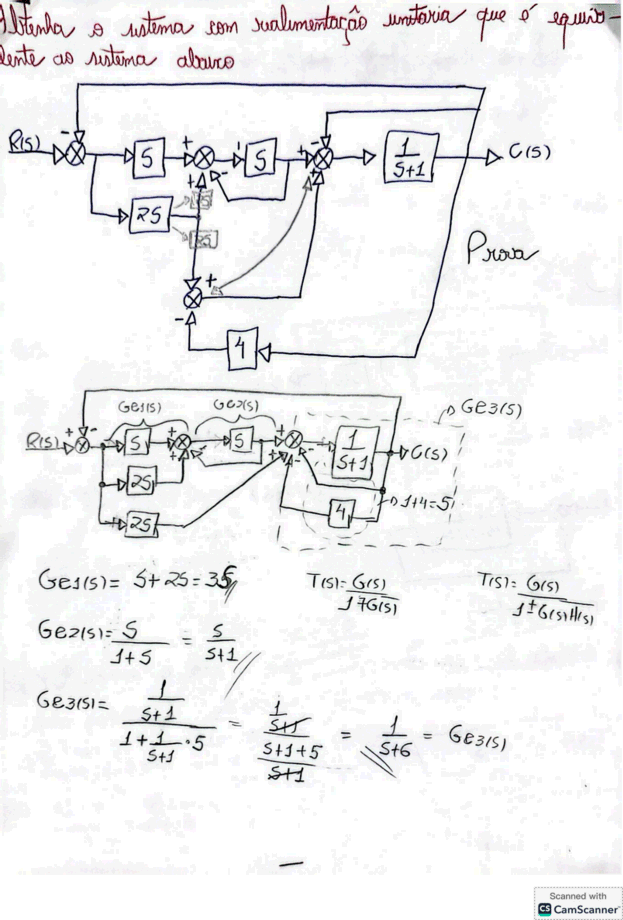 Obtenha o sistema com realimentação unitária que é equiva-
lente ao sistema abaixo
R(s) - S + + S + - 1/S+1 C(s)
-
2S + - +
2S
2S
Prova
+
-
4
Ge1(s) Ge2(s) Ge3(s)
R(s) + - S + + - S + + - - 1/S+1 C(s)
2S
4 1+4=5
2S
Ge1(s)= S+2S=3S T(s)=G(s)/1∓G(s) T(s)=G(s)/1±G(s)H(s)
Ge2(s)=S/1+S = S/S+1
Ge3(s)= 1/S+1 / 1+1/S+1 · 5 = 1/S+1 / S+1+5/S+1 = 1/S+6 = Ge3(s)
Scanned with
CS CamScanner